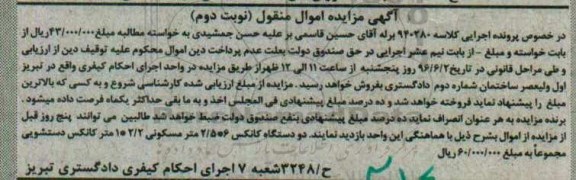 آگهی مزایده اموال منقول (نوبت دوم)
در خصوص پرونده اجرایی کلاسه ۹۴۰۲۸۰ برله آقای حسین قاسمی بر علیه حسن جمشیدی به خواسته مطالبه مبلغ ۴۳/۰۰۰/۰۰۰ریال از
بابت خواسته و مبلغ - از بابت نیم عشر اجرایی در حق صندوق دولت بعلت عدم پرداخت دین اموال محکوم علیه توقیف دین از ارزیابی
و طی مراحل قانونی در تاریخ ۹۶/۶/۲ روز پنجشنبه از ساعت ۱۱ الی ۱۲ ظهراز طریق مزایده در واحد اجرای احکام کیفری واقع در تبریز
اول ولیعصر ساختمان شماره دوم دادگستری بفروش خواهد رسید. مزایده از مبلغ ارزیابی شده کارشناسی شروع و به کسی که بالاترین
مبلغ را پیشنهاد نماید فروخته خواهد شد و ده درصد مبلغ پیشنهادی فی المجلس اخذ و به ما بقی حداکثر یکماه فرصت داده میشود.
برنده مزایده به هر عنوان انصراف نماید ده درصد مبلغ پیشنهادی بنفع صندوق دولت ضبط خواهد شد طالبین می توانند پنج روز قبل
از مزایده از اموال بشرح ذیل با هماهنگی این واحد بازدید نمایند. دو دستگاه کانکس ۶*۲/۵ متر مسکونی ۲/۲*۱ متر کانکس دستشویی
مجموعاً به مبلغ ۶۰/۰۰۰/۰۰۰ ریال
ح/۳۲۴۸ شعبه ۷ اجرای احکام کیفری دادگستری تبریز